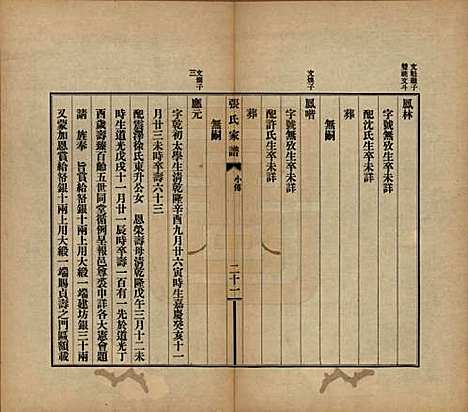 文魁嗣子
雙祧文斗
鳳林
字號無攷生卒未詳
配沈氏生卒未詳
葬
無嗣
文煥子
鳳喈
字號無攷生卒未詳
配許氏生卒未詳
葬
無嗣
張氏家譜
小傳
二十二
文燦子
三
應元
字乾初太學生清乾隆辛酉九月廿六寅時生嘉慶癸亥十一
月廿三未時卒壽六十三
配震澤徐氏東升公女 恩榮壽母清乾隆戊午三月十二未
時生道光戊戌十一月廿一辰時卒壽一百有一先於道光丁
酉歲壽臻百齡五世同堂循例呈報邑尊裘申詳各大憲會題
請 旌奉 旨賞給帑銀十兩上用大緞一端建坊銀三十兩
又蒙加恩賞給帑銀十兩上用大緞一端賜貞壽之門區額載